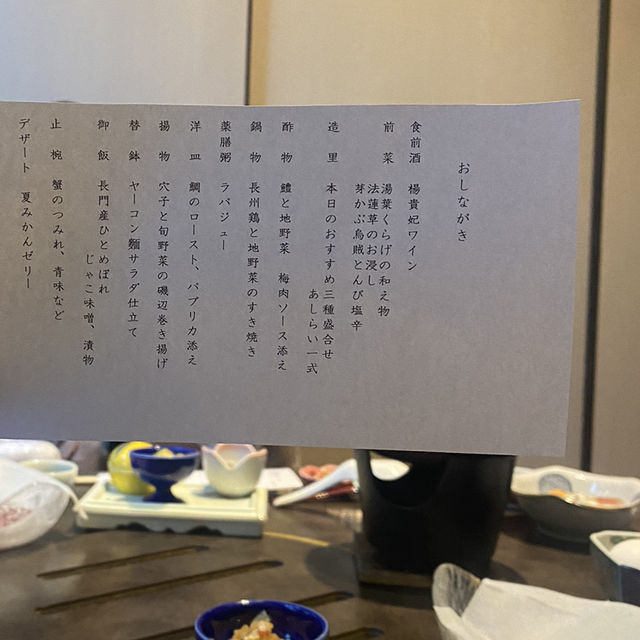 おしながき
食前酒 楊貴妃ワイン
前 菜 湯葉くらげの和え物
法蓮草のお浸し
芽かぶ烏賊とんび塩辛
造 里 本日のおすすめ三種盛合せ
あしらい一式
酢 物 鱧と地野菜 梅肉ソース添え
鍋 物 長州鶏と地野菜のすき焼き
薬膳粥 ラバジュー
洋 皿 鯛のロースト、パプリカ添え
揚 物 穴子と旬野菜の磯辺巻き揚げ
替 鉢 ヤーコン麺サラダ仕立て
御 飯 長門産ひとめぼれ
じゃこ味噌、漬物
止 椀 蟹のつみれ、青味など
デザート 夏みかんゼリー